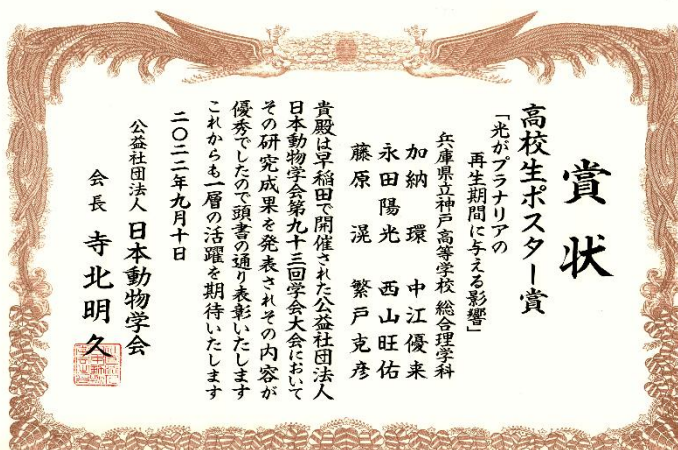 賞状
高校生ポスター賞
「光がプラナリアの
再生期間に与える影響」
兵庫県立神戸高等学校 総合理学科
加納 環 中江優来
永田陽光 西山旺佑
藤原 滉 繁戸克彦
貴殿は早稲田で開催された公益社団法人
日本動物学会第九十三回学会大会において
その研究成果を発表されその内容が
優秀でしたので頭書の通り表彰いたします
これからも一層の活躍を期待いたします
二〇二二年九月十日
公益社団法人 日本動物学会
会長 寺北明久